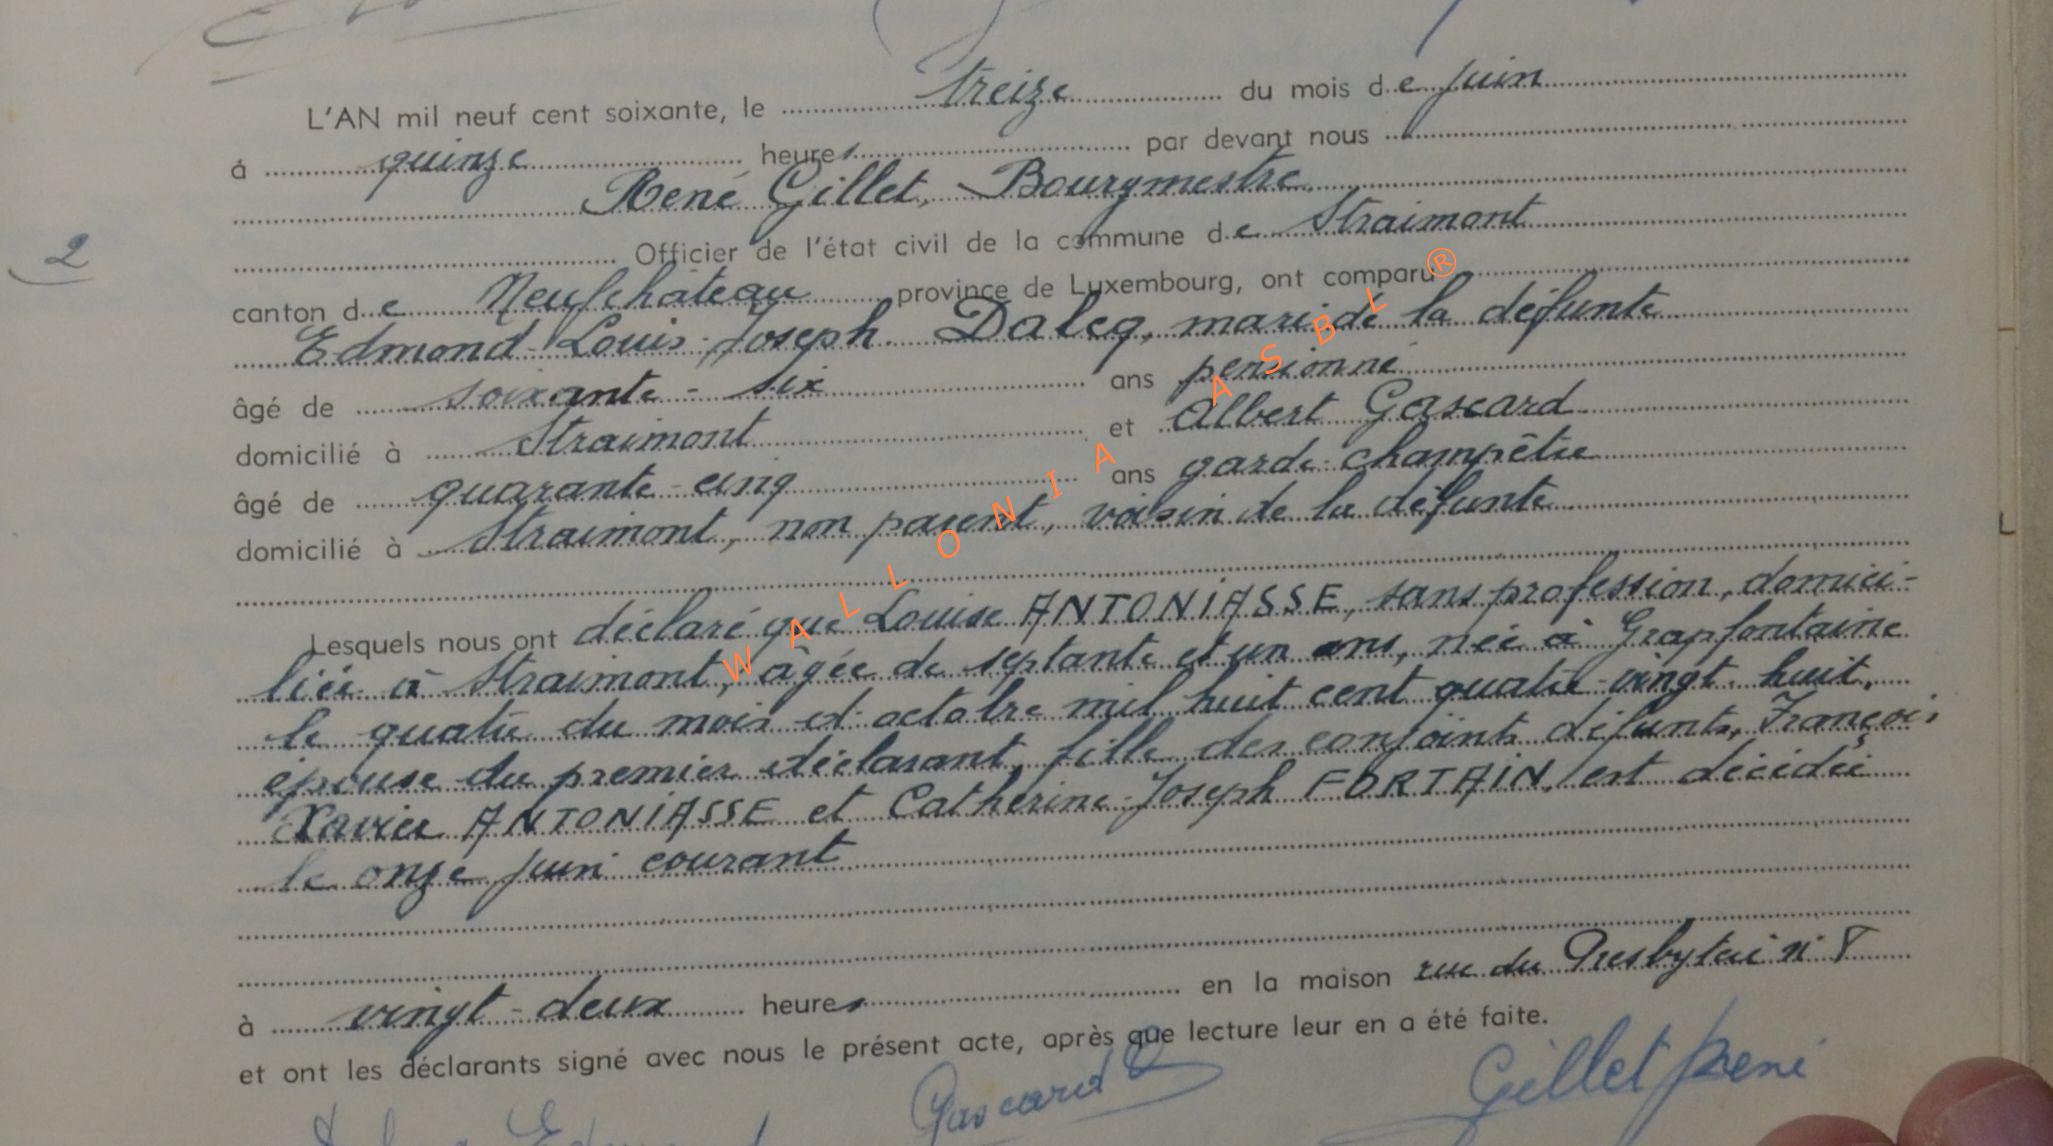 L'AN mil neuf cent soixante, le treize du mois de juin
à quinze heures par devant nous
René Gillet, Bourgmestre
Officier de l'état civil de la commune de Straimont
canton de Neufchateau province de Luxembourg, ont comparu
Edmond-Louis-Joseph Dalcq, mari de la défunte
âgé de soixante-six ans pensionné
domicilié à Straimont et Albert Gascard
âgé de quarante-cinq ans garde-champêtre
domicilié à Straimont, non parent, voisin de la défunte
Lesquels nous ont déclaré que Louise ANTONIASSE, sans profession, domici-
liée à Straimont, âgée de septante et un ans, née à Grapfontaine
le quatre du mois d'octobre mil huit cent quatre-vingt-huit,
épouse du premier déclarant, fille des conjoints défunts, François
Xavier ANTONIASSE et Catherine-Joseph FORTAIN, est décédée
le onze juin courant
à vingt-deux heures en la maison rue du Presbytère n° 8
et ont les déclarants signé avec nous le présent acte, après que lecture leur en a été faite.
Gascard Gillet René
Edmond
2
WALLONIA ASBL®